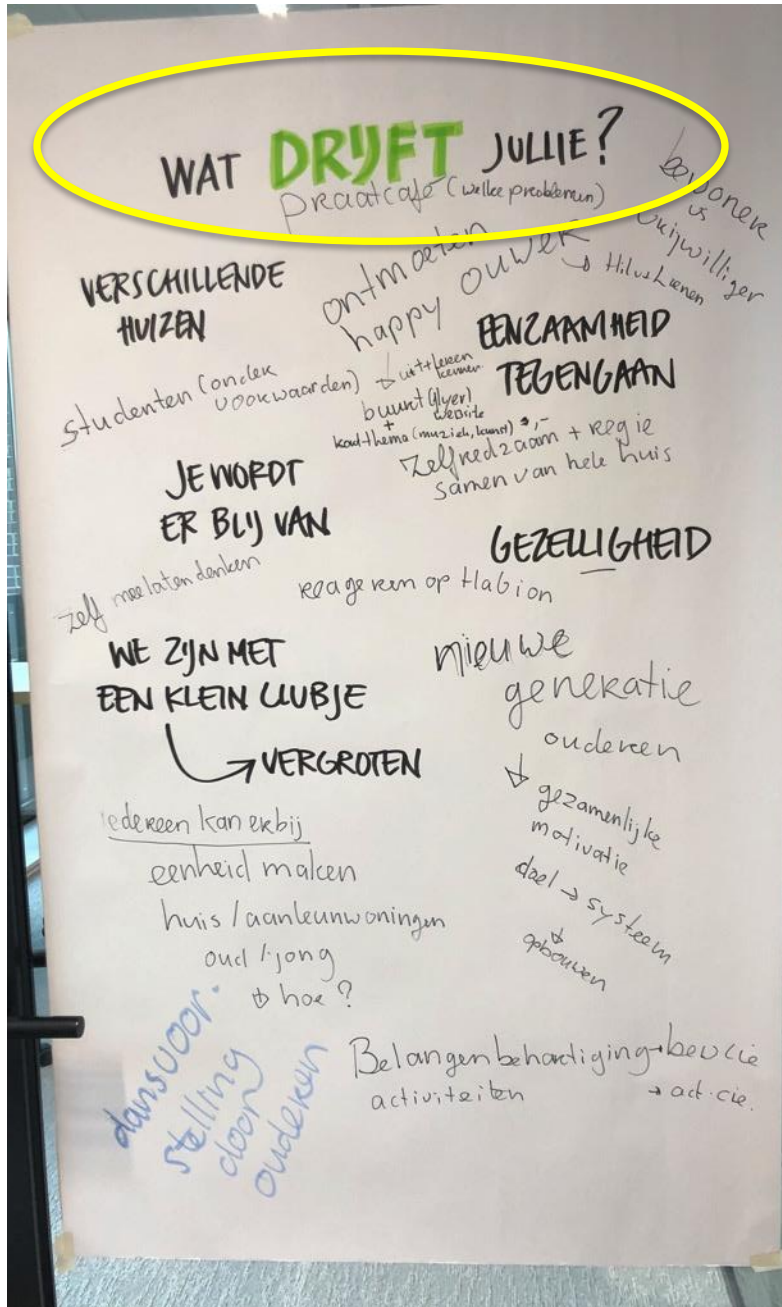 WAT DRIJFT JULLIE?
praatcafé (welke problemen)
bewoner
is
vrijwilliger
ontmoeten
happy ouwer
→ Hilus
VERSCHILLENDE
HUIZEN
EENZAAMHEID
TEGENGAAN
studenten (onder
voorwaarden)
→ uit + leren
kennen
buurt (flyer)
website
+
thema (muziek, kunst)
zelfredzaam + regie
samen van hele huis
JE WORDT
ER BLIJ VAN
GEZELLIGHEID
zelf mee laten denken
reageren op Habion
WE ZIJN MET
EEN KLEIN CLUBJE
→ VERGROTEN
nieuwe
generatie
ouderen
↓ gezamenlijke
motivatie
doel → systeem
↓
opbouwen
iedereen kan erbij
eenheid maken
huis / aanleunwoningen
oud / jong
↓ hoe?
dansvoor-
stelling
door
ouderen
Belangenbehartiging → bewcie
activiteiten → act.cie.